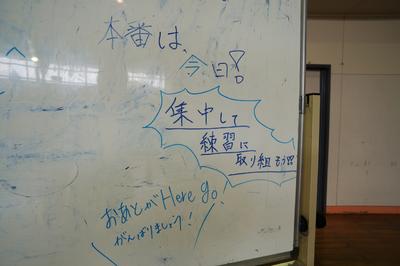 本番は、
今日!
集中して
練習に
取り組もう!!
おあとが Here go!
がんばりましょう!